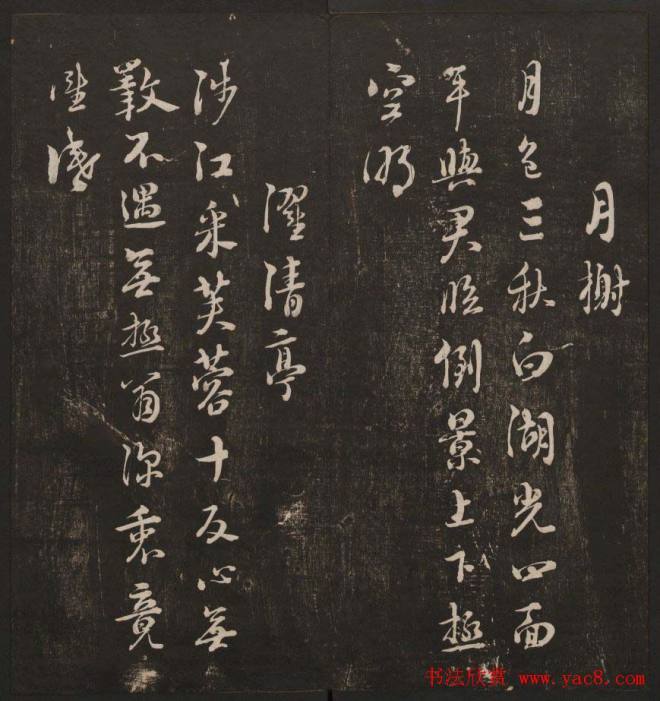 月榭
月色三秋白湖光四面
平與君凌倒景上下極
空明
濯清亭
涉江采芙蓉十反心無
斁不遇無極翁深衷竟
誰識
书法欣赏 www.yac8.com